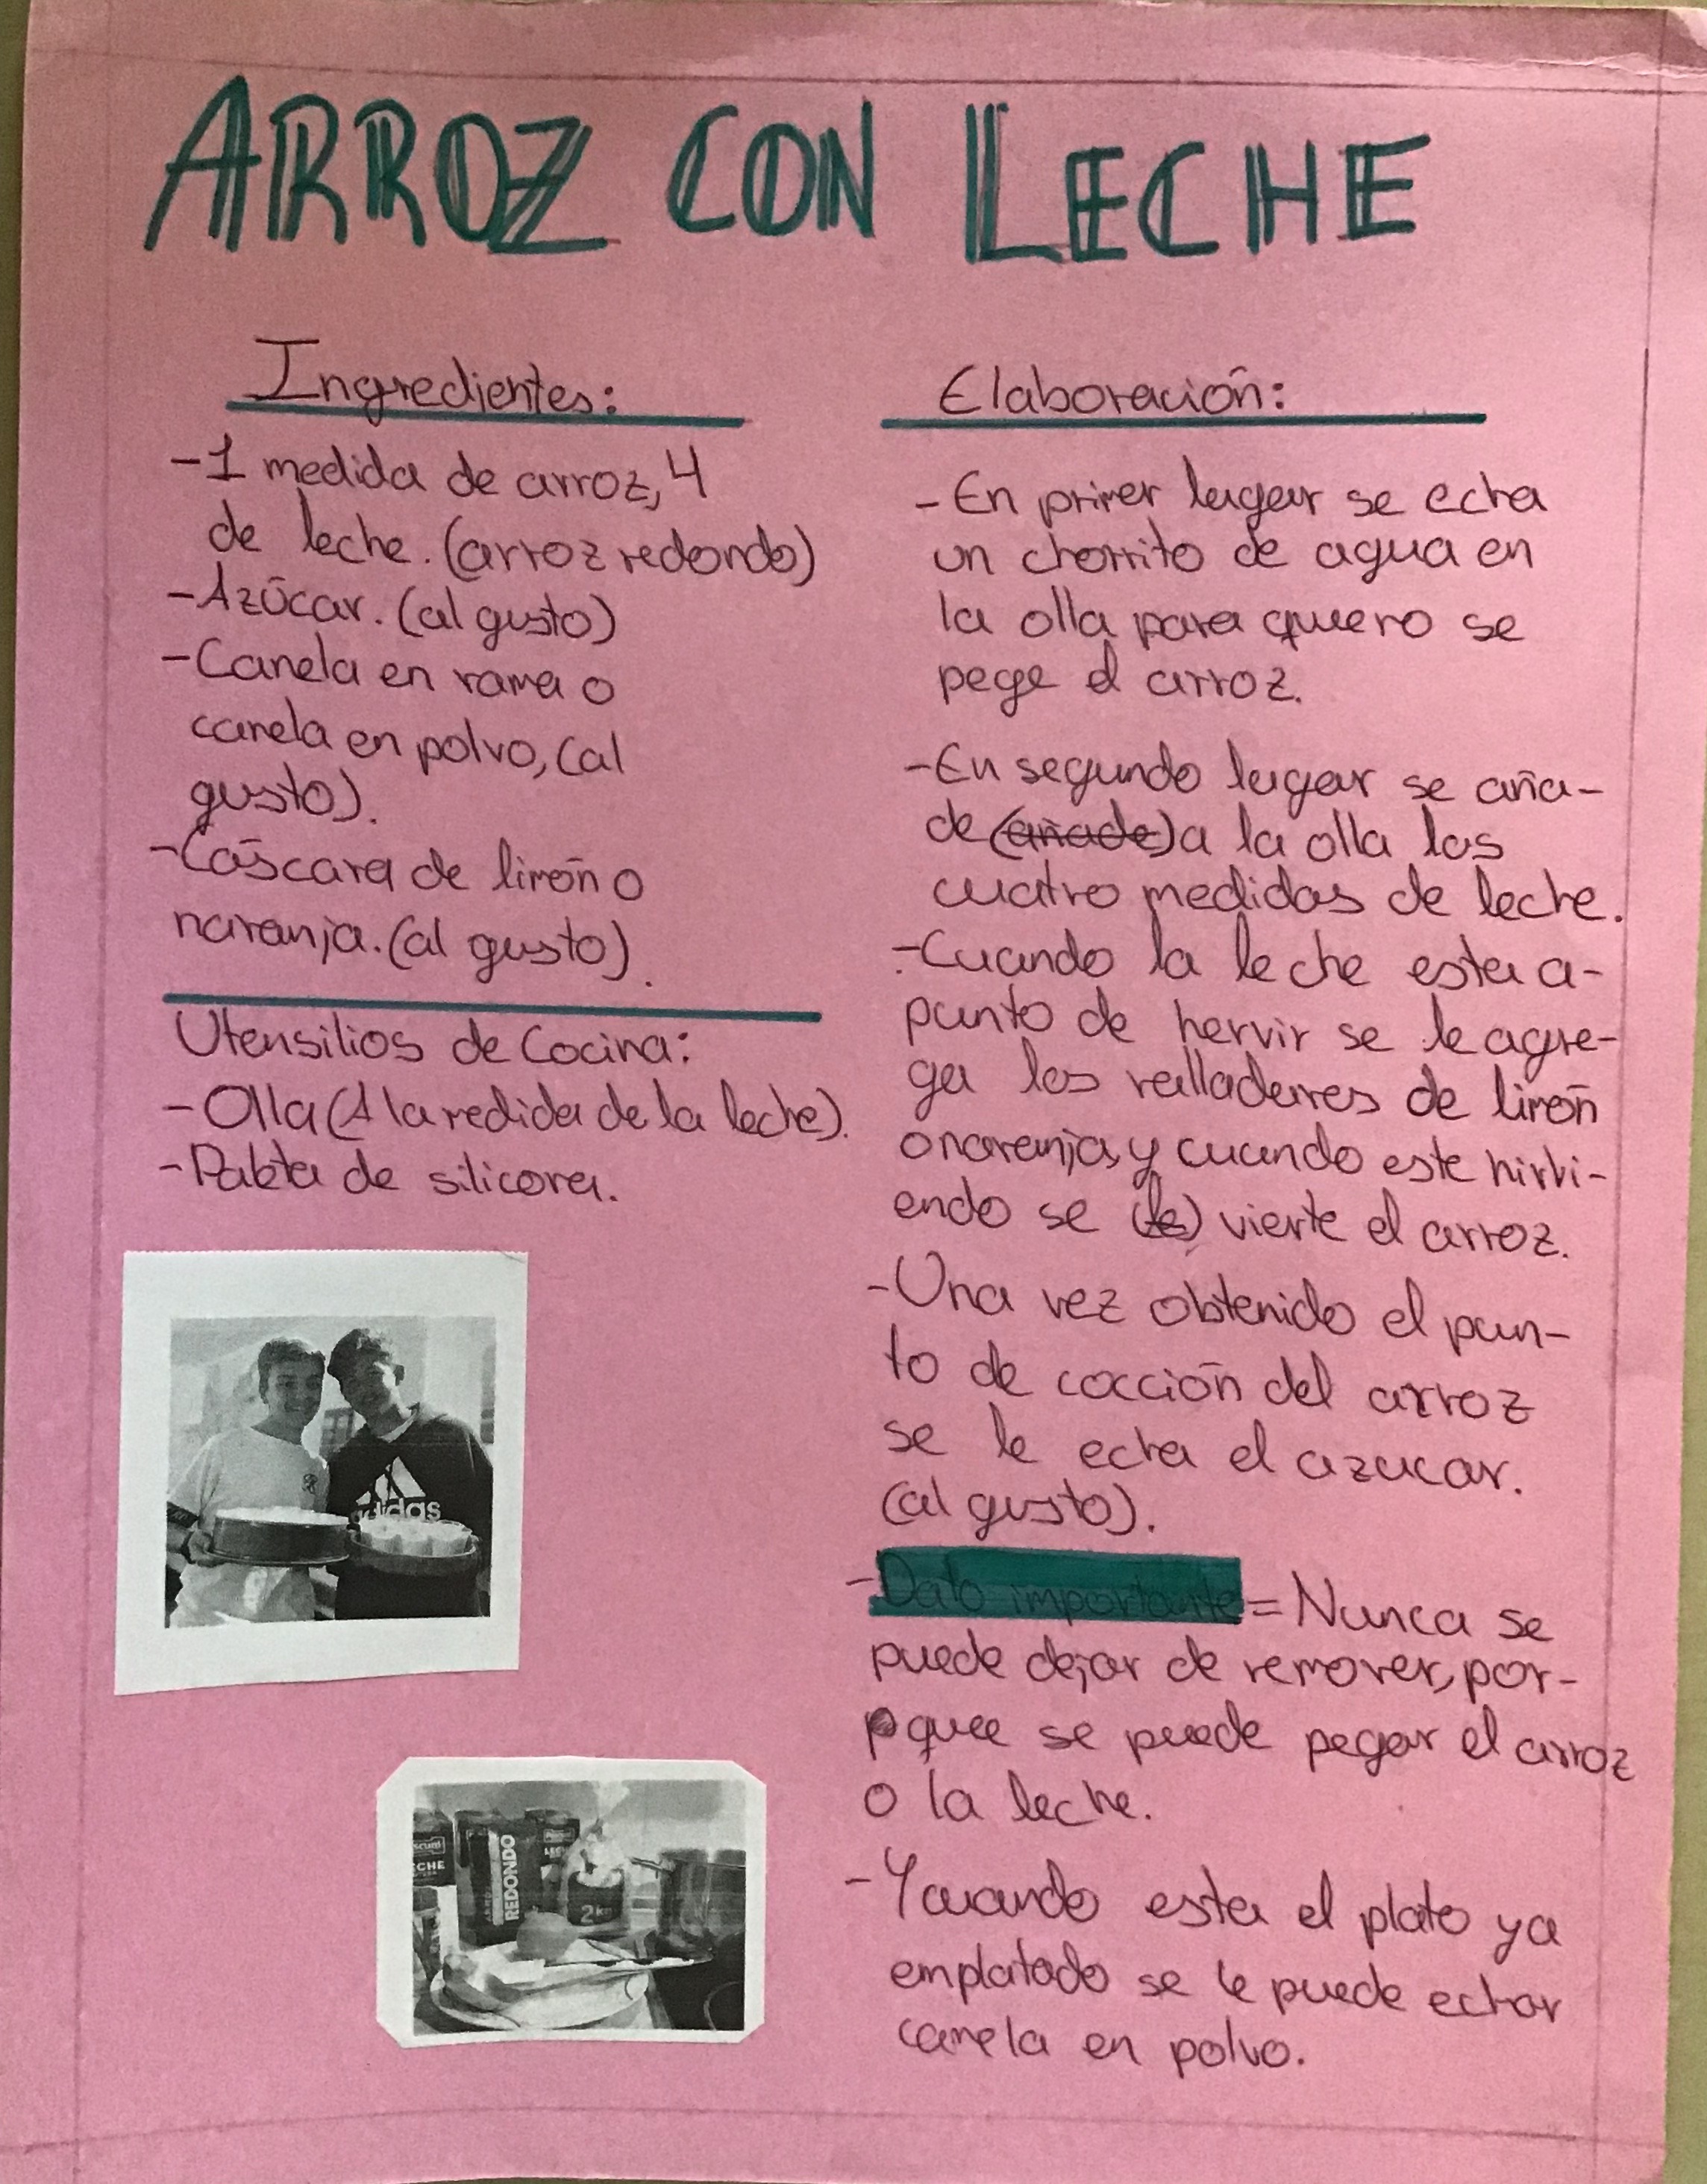 ARROZ CON LECHE
Ingredientes:
-1 medida de arroz, 4
de leche. (arroz redondo)
-Azúcar. (al gusto)
-Canela en rama o
canela en polvo, (al
gusto).
-Cáscara de limón o
naranja. (al gusto).
Utensilios de Cocina:
-Olla (A la medida de la leche).
-Paleta de silicona.
Elaboración:
-En primer lugar se echa
un chorrito de agua en
la olla para que no se
pege el arroz.
-En segundo lugar se aña-
de (añade) a la olla las
cuatro medidas de leche.
-Cuando la leche esta a-
punto de hervir se le agre-
ga las ralladuras de limón
o naranja, y cuando este hirvi-
endo se (le) vierte el arroz.
-Una vez obtenido el pun-
to de cocción del arroz
se le echa el azucar.
(al gusto).
-Dato importante = Nunca se
puede dejar de remover, por-
que se puede pegar el arroz
o la leche.
-Y cuando esta el plato ya
emplatado se le puede echar
canela en polvo.
adidas
CHE
REDONDO
2 kg